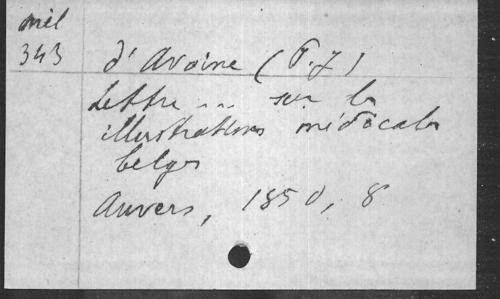 mél
343
d'Avoine (P. J)
Lettre ... sur les
illustrations médicales
belges
Anvers, 1850, 8